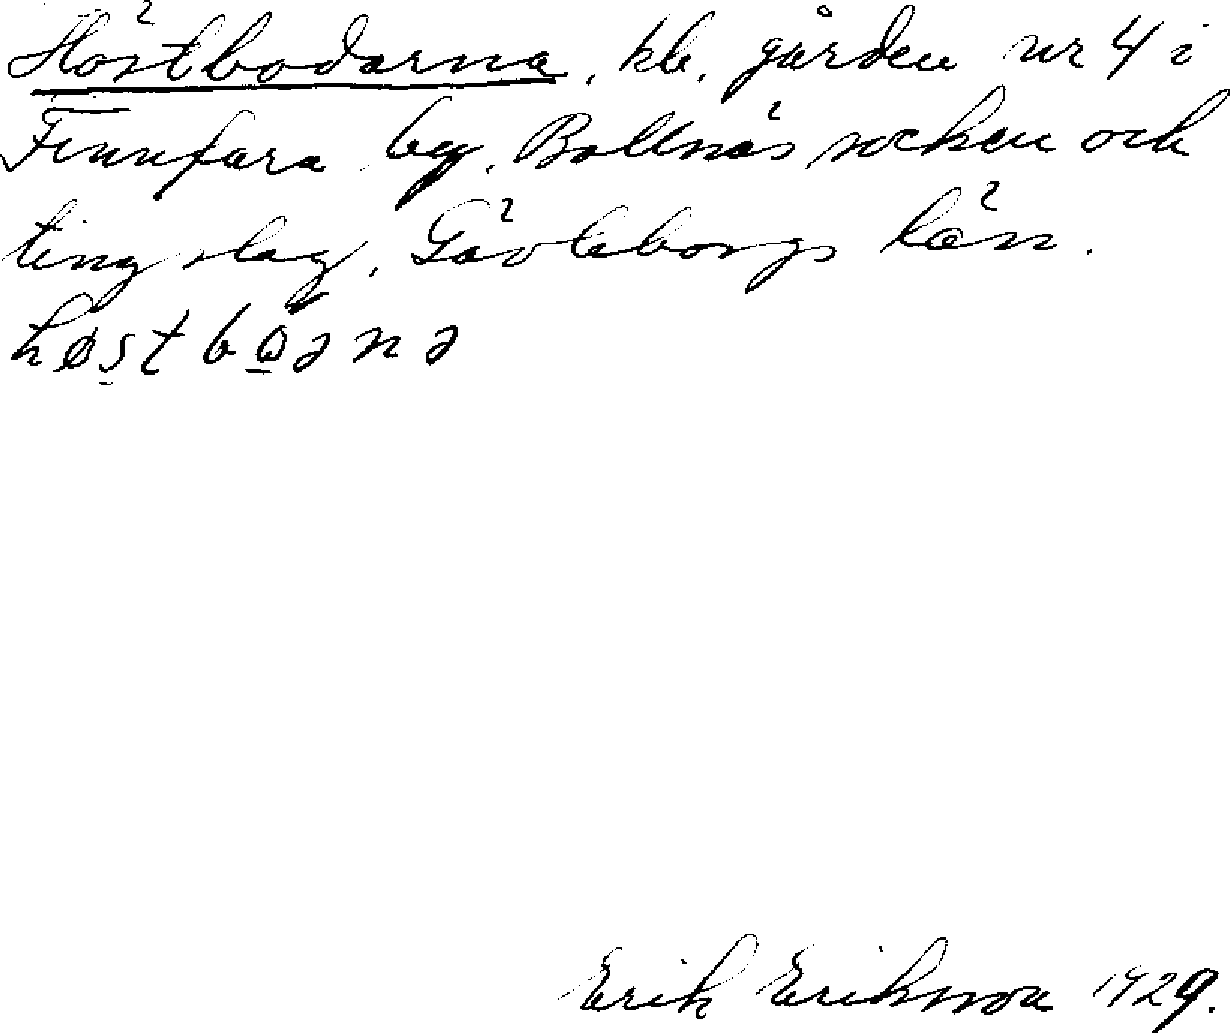 Höstbodarna, kb. gården nr 4 i
Finnfara by, Bollnäs socken och
tingslag, Gävleborgs län.
høstbωənə
Erik Eriksson 1929.